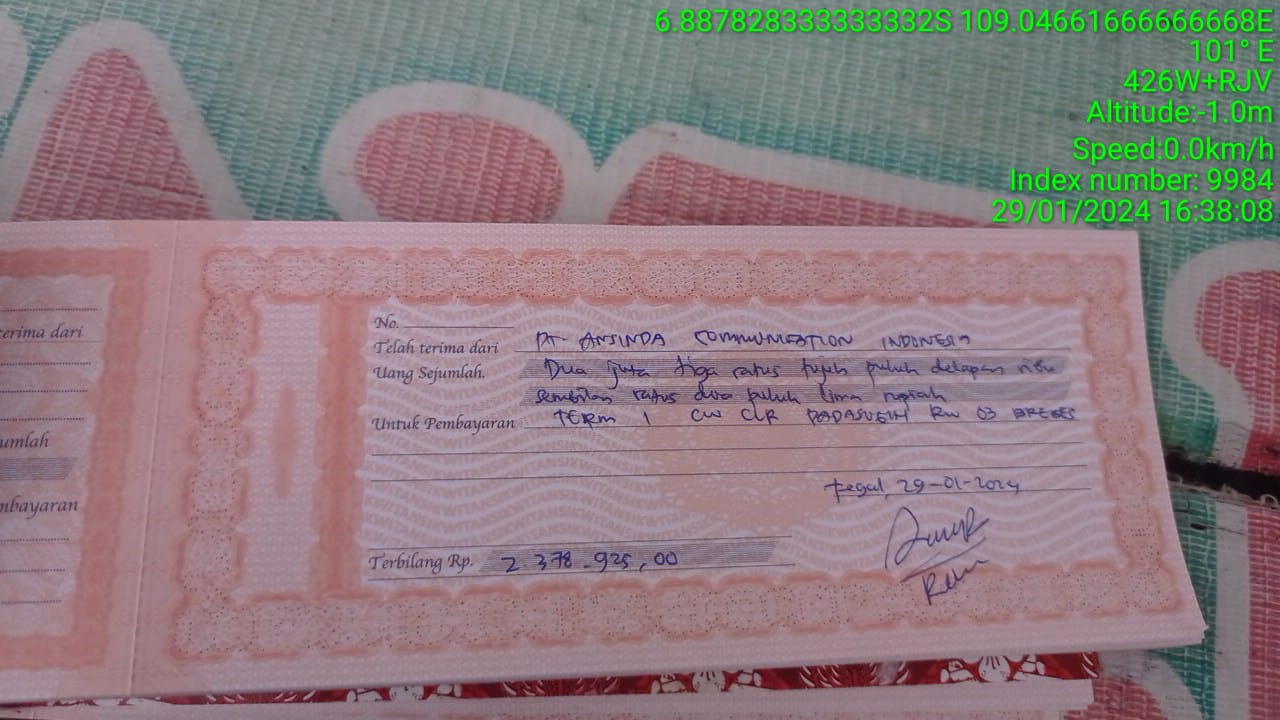 6.887828333333332S 109.04661666666668E
101° E
426W+RJV
Altitude:-1.0m
Speed:0.0km/h
Index number: 9984
29/01/2024 16:38:08
terima dari
umlah
mbayaran
No.
Telah terima dari PT. ANSINDA COMMUNICATION INDONESIA
Uang Sejumlah. Dua juta tiga ratus tujuh puluh delapan ribu
sembilan ratus dua puluh lima rupiah
Untuk Pembayaran TERM 1 CW CLR RW 03 BREBES
Tegal, 29-01-2024
Terbilang Rp. 2.378.925,00